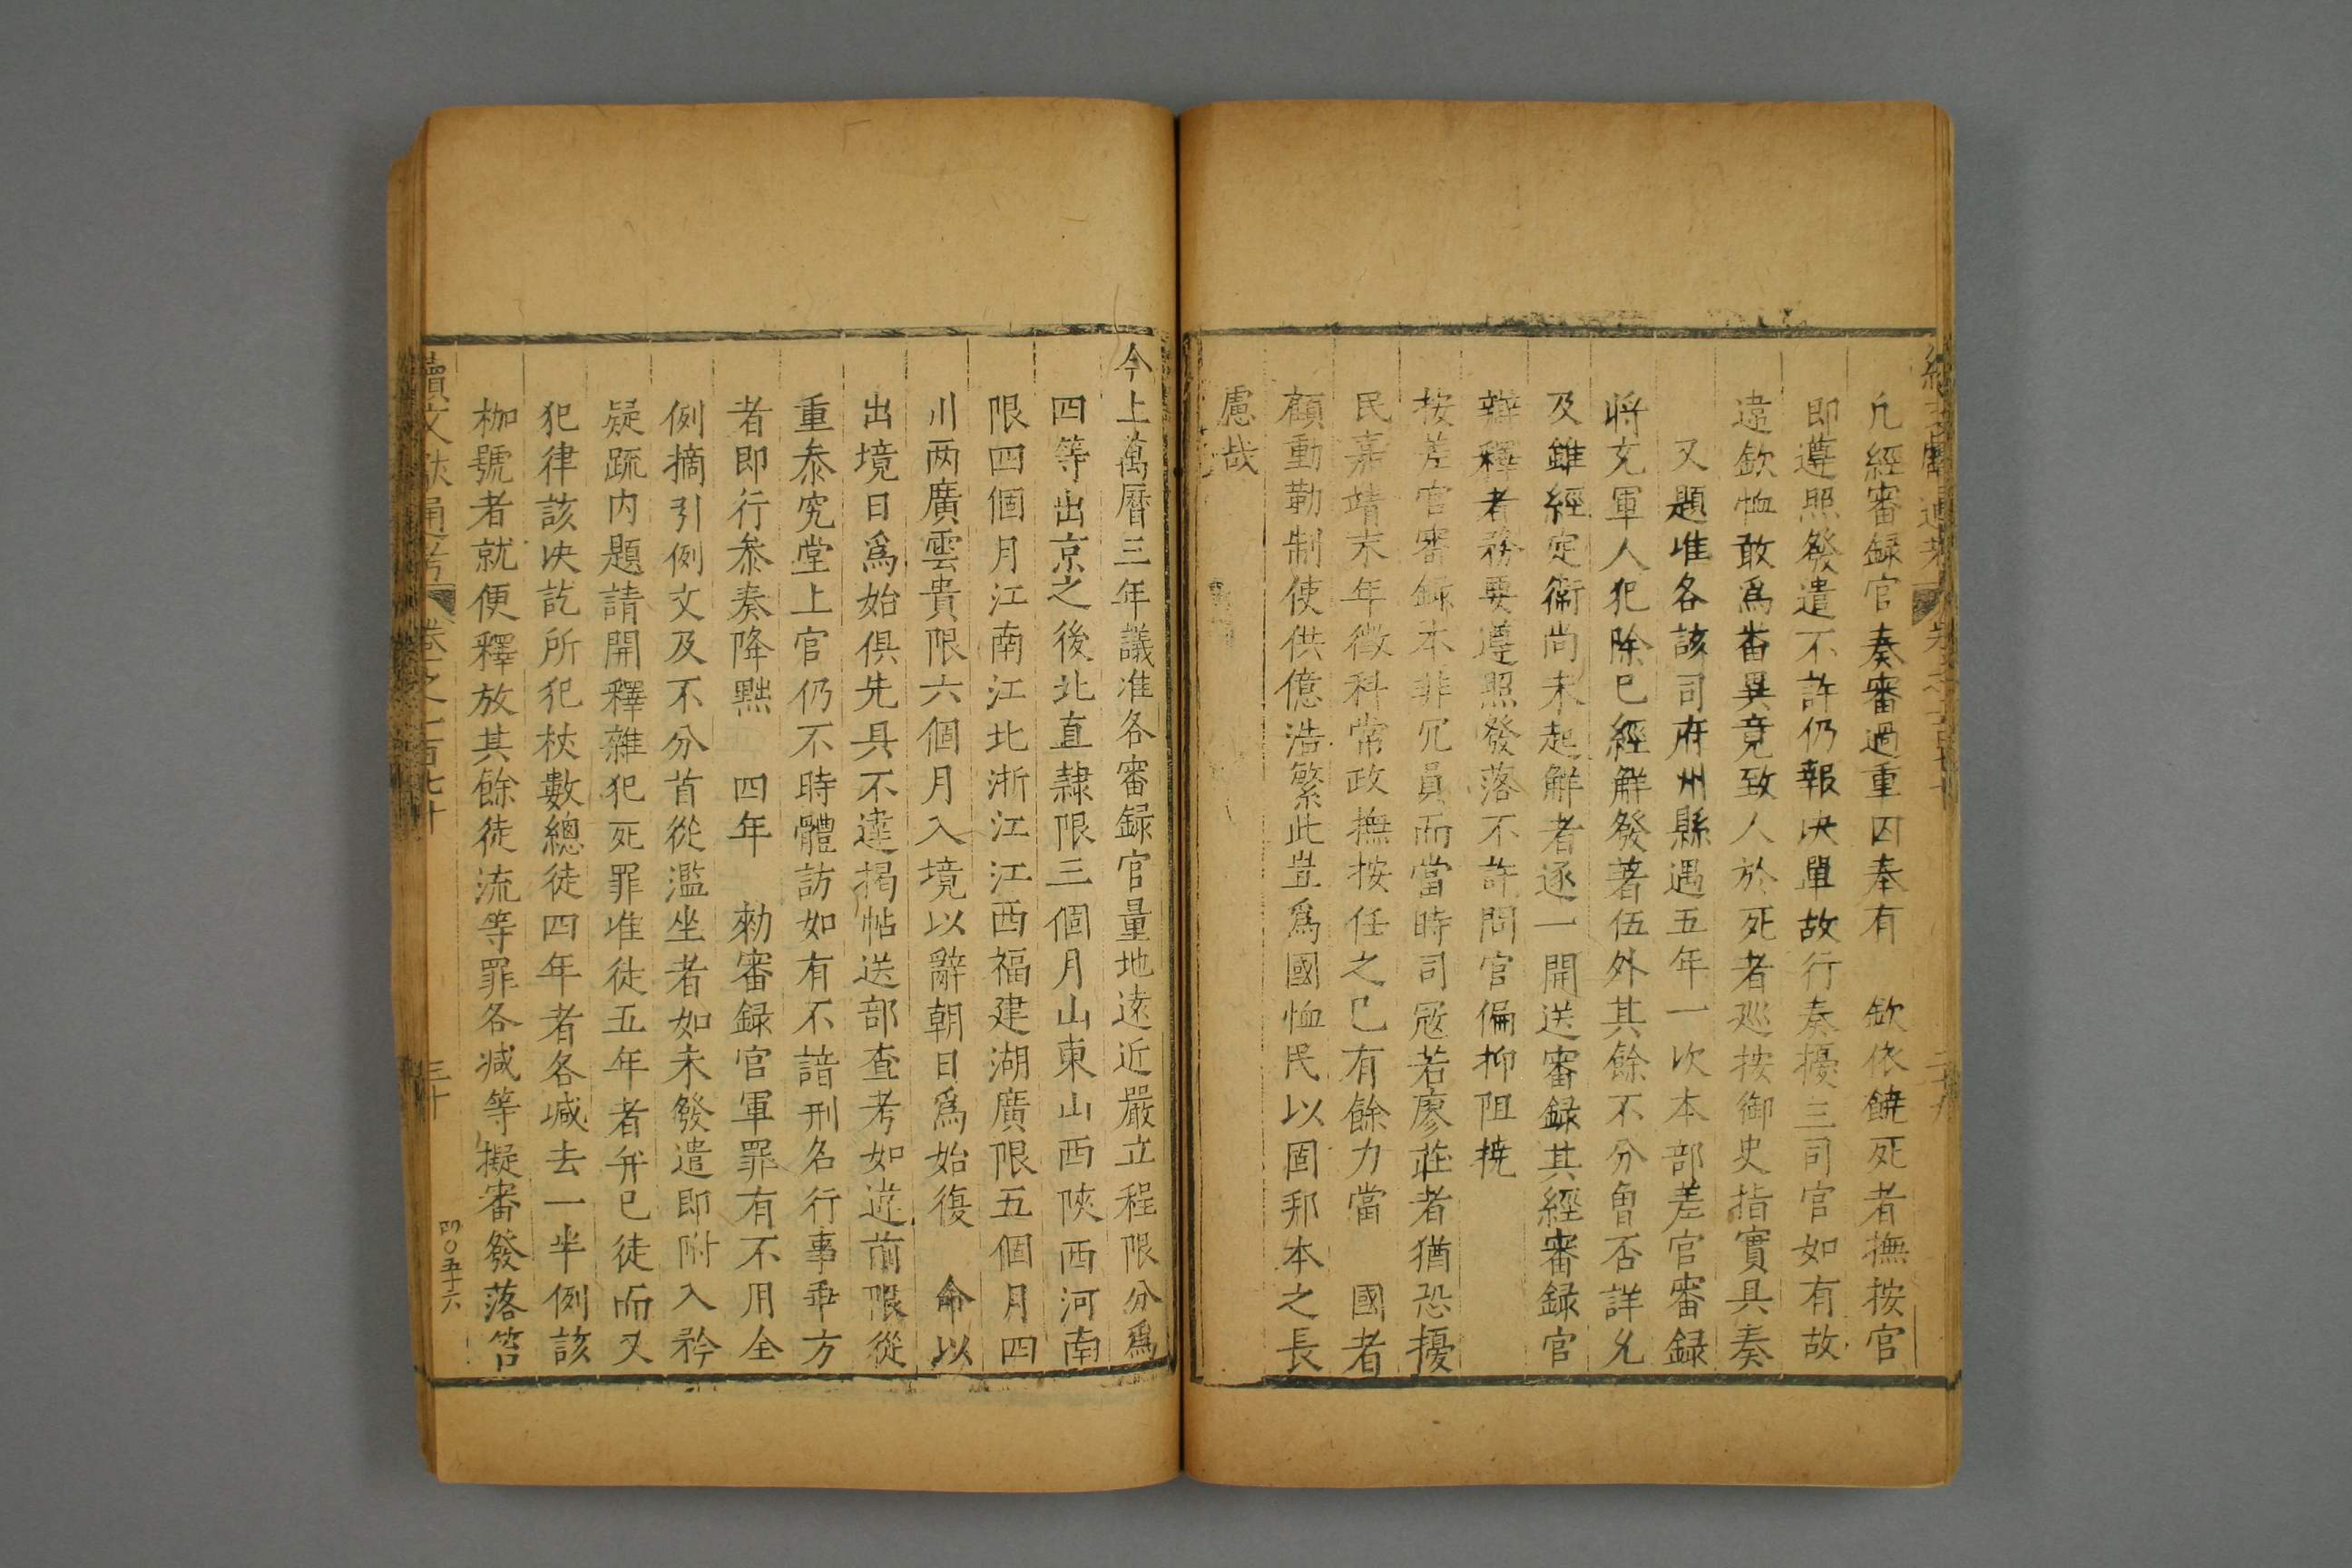 凢經審録官奏審過重囚奉有　欽依饒死者撫按官
即遵照發遣不許仍報决單故行奏擾三司官如有故
違欽恤敢爲畨異竟致人於死者廵按御史指實具奏
又題准各該司府州縣遇五年一次本部差官審録
將充軍人犯除巳經觧發著伍外其餘不分曽否詳允
及雖經定衛尚未起觧者逐一開送審録其經審録官
辯釋者務要遵照發落不許問官偏抑阻撓
按差官審録本非冗員而當時司宼若廖莊者猶恐擾
民嘉靖末年徴科常政撫按任之巳有餘力當　國者
顧動勒制使供億浩繁此豈爲國恤民以固邦本之長
慮㢤
今上萬曆三年議准各審録官量地逺近嚴立程限分爲
四等出京之後北直隷限三個月山東山西陜西河南
限四個月江南江北浙江江西福建湖廣限五個月四
川两廣雲貴限六個月入境以辭朝日爲始復　命以
出境日爲始俱先具不違揭帖送部查考如違前限從
重叅究堂上官仍不時體訪如有不諳刑名行事乖方
者即行叅奏降黜　四年　勑審録官軍罪有不用全
例摘引例文及不分首從濫坐者如未發遣即附入矜
疑䟽内題請開釋雜犯死罪准徒五年者并巳徒而又
犯律該决訖所犯杖數總徒四年者各減去一半例該
枷號者就便釋放其餘徒流等罪各减等擬審發落笞
續文献通考　卷之一百七十　三十
四〇五十六